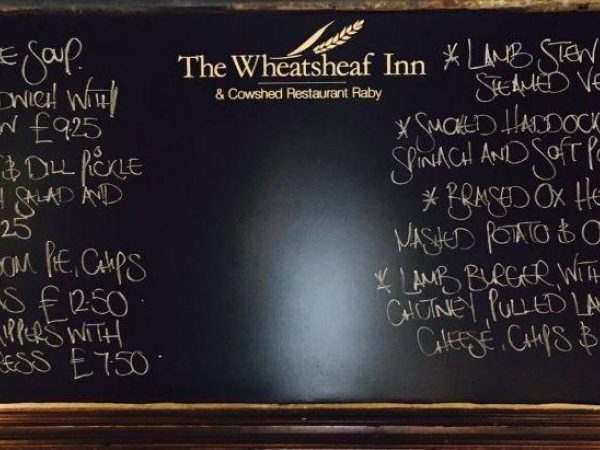 SOUP.
WITH
£9.25
& DILL PICKLE
SALAD AND
25
PIE, CHIPS
£12.50
KIPPERS WITH
£7.50
The Wheatsheaf Inn
& Cowshed Restaurant Raby
* LAMB STEW
STEAMED VE
* SMOKED HADDOCK
SPINACH AND SOFT PO
* BRAISED OX HE
MASHED POTATO & O
* LAMB BURGER, WITH
CHUTNEY PULLED LAM
CHEESE, CHIPS &